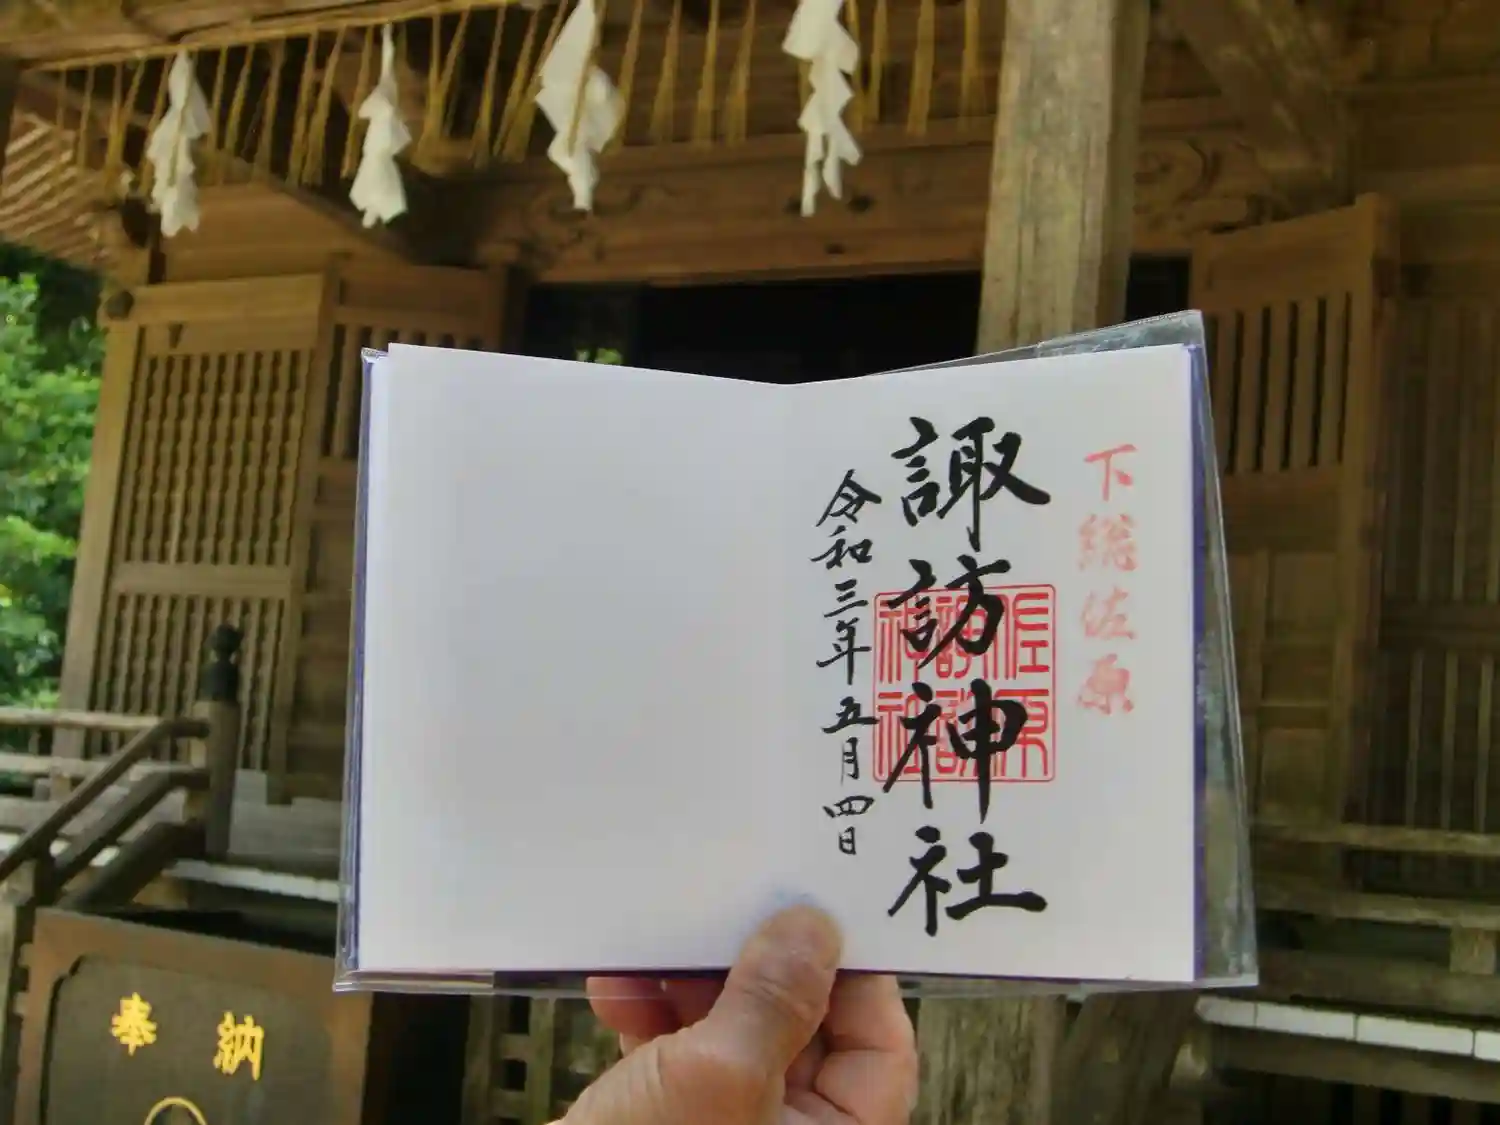 下総佐原
諏訪神社
令和三年五月四日
佐原
諏訪
神社
奉納